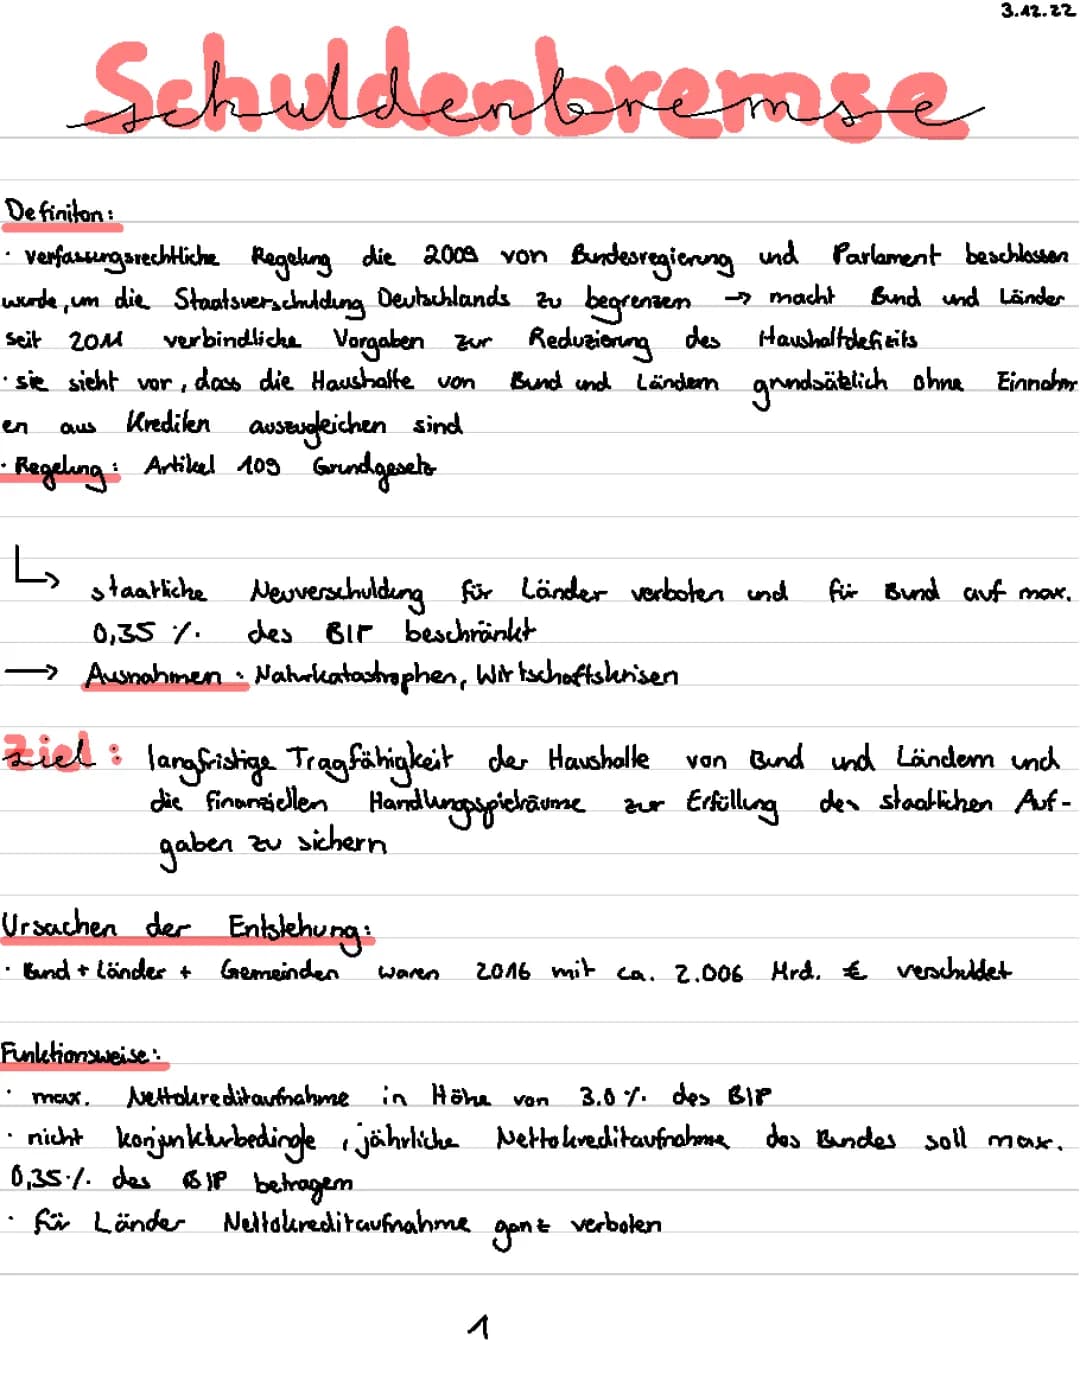 3.12.22
Schuldenbremse
Definiton:
· verfassungsrechtliche Regelung die 2009 von Bundesregierung und Parlament beschlossen
wurde, um die Staatsverschuldung Deutschlands zu begrenzen → macht Bund und Länder
seit 2011 verbindliche Vorgaben zur Reduzierung des Haushaltdefizits
· sie sieht vor, dass die Haushalte von Bund und Ländern grundsätzlich ohne Einnahm
en aus Krediten auszugleichen sind
· Regelung: Artikel 109 Grundgesetz
↳ staatliche Neuverschuldung für Länder verboten und für Bund auf max.
0,35 % des BIP beschränkt
→ Ausnahmen: Naturkatastrophen, Wirtschaftskrisen
Ziel: langfristige Tragfähigkeit der Haushalte von Bund und Ländern und
die finanziellen Handlungsspielräume zur Erfüllung der staatlichen Auf-
gaben zu sichern
Ursachen der Entstehung:
· Bund + Länder + Gemeinden waren 2016 mit ca. 2.006 Mrd. € verschuldet
Funktionsweise:
· max. Nettokreditaufnahme in Höhe von 3.0 % des BIP
· nicht konjunkturbedingte, jährliche Nettokreditaufnahme des Bundes soll max.
0,35 % des BIP betragen
· für Länder Nettokreditaufnahme ganz verboten
1